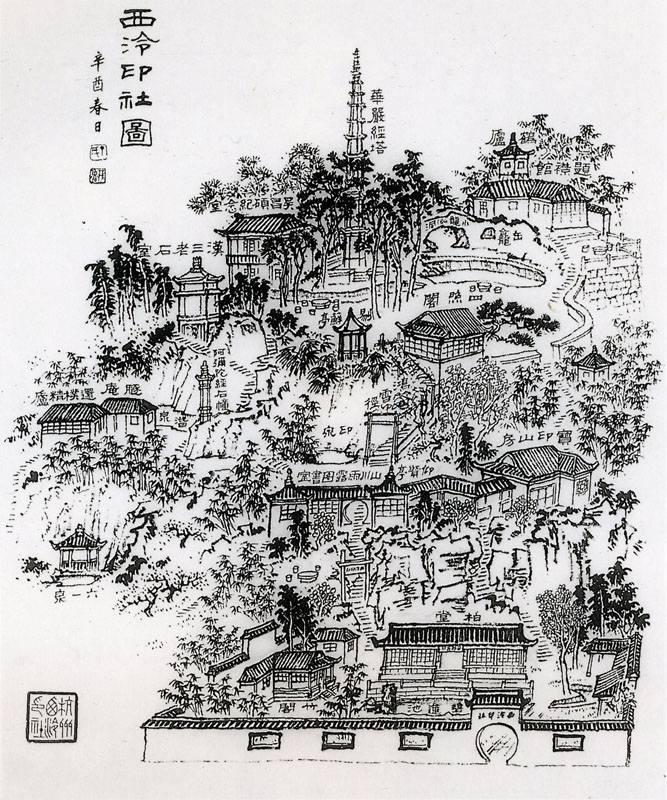 西泠印社圖
辛酉春日
華嚴經塔
鶴廬
題襟館
吳昌碩紀念室
漢三老石室
小龍泓洞
缶龕
四照閣
剔蘚亭
阿彌陀經石幢
遯庵
還樸精廬
潛泉
印泉
寶印山房
仰賢亭
山川雨露圖書室
六一泉
柏堂
竹閣
蓮池
西泠印社
杭州西泠印社